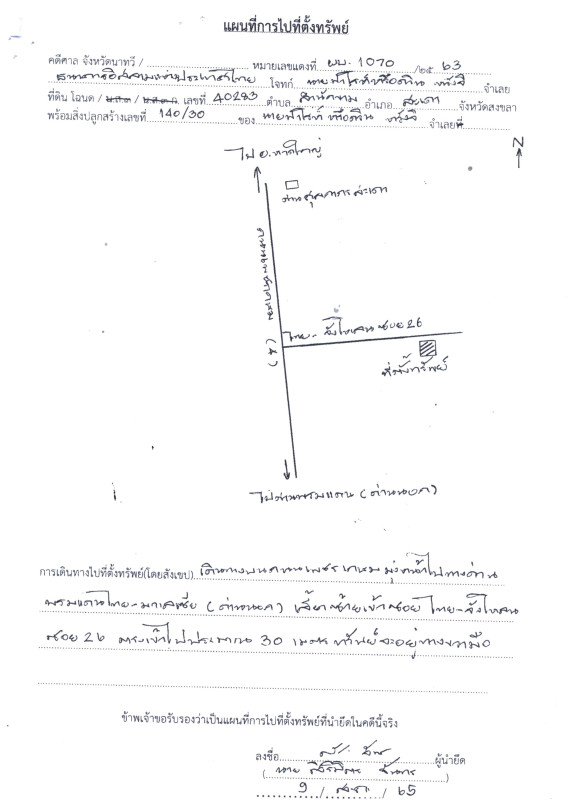 แผนที่การไปที่ตั้งทรัพย์
คดีศาล จังหวัดนาทวี / หมายเลขแดงที่ ผบ. 1070 /๒๕ 63
ธนาคารอิสลามแห่งประเทศไทย โจทก์ จำเลย
ที่ดิน โฉนด / น.ส.๓ / น.ส.๓ ก. เลขที่ 40293 ตำบล สำนักขาม อำเภอ สะเดา จังหวัดสงขลา
พร้อมสิ่งปลูกสร้างเลขที่ 140/30 ของ จำเลยที่
ไป อ.หาดใหญ่
N
ด่านศุลกากรสะเดา
ไทย-จังโหลน ซอย 26
(4)
ที่ตั้งทรัพย์
ไปด่านพรมแดน (ด่านนอก)
การเดินทางไปที่ตั้งทรัพย์(โดยสังเขป) เดินทางบนถนนเพชรเกษมมุ่งหน้าไปทางด่าน
พรมแดนไทย-มาเลเซีย (ด่านนอก) เลี้ยวซ้ายเข้าซอย ไทย-จังโหลน
ซอย 26 ตรงเข้าไปประมาณ 30 เมตร ทรัพย์จะอยู่ทางขวามือ
ข้าพเจ้าขอรับรองว่าเป็นแผนที่การไปที่ตั้งทรัพย์ที่นำยึดในคดีนี้จริง
ลงชื่อ ผู้นำยึด
( นาย )
9 / / 65